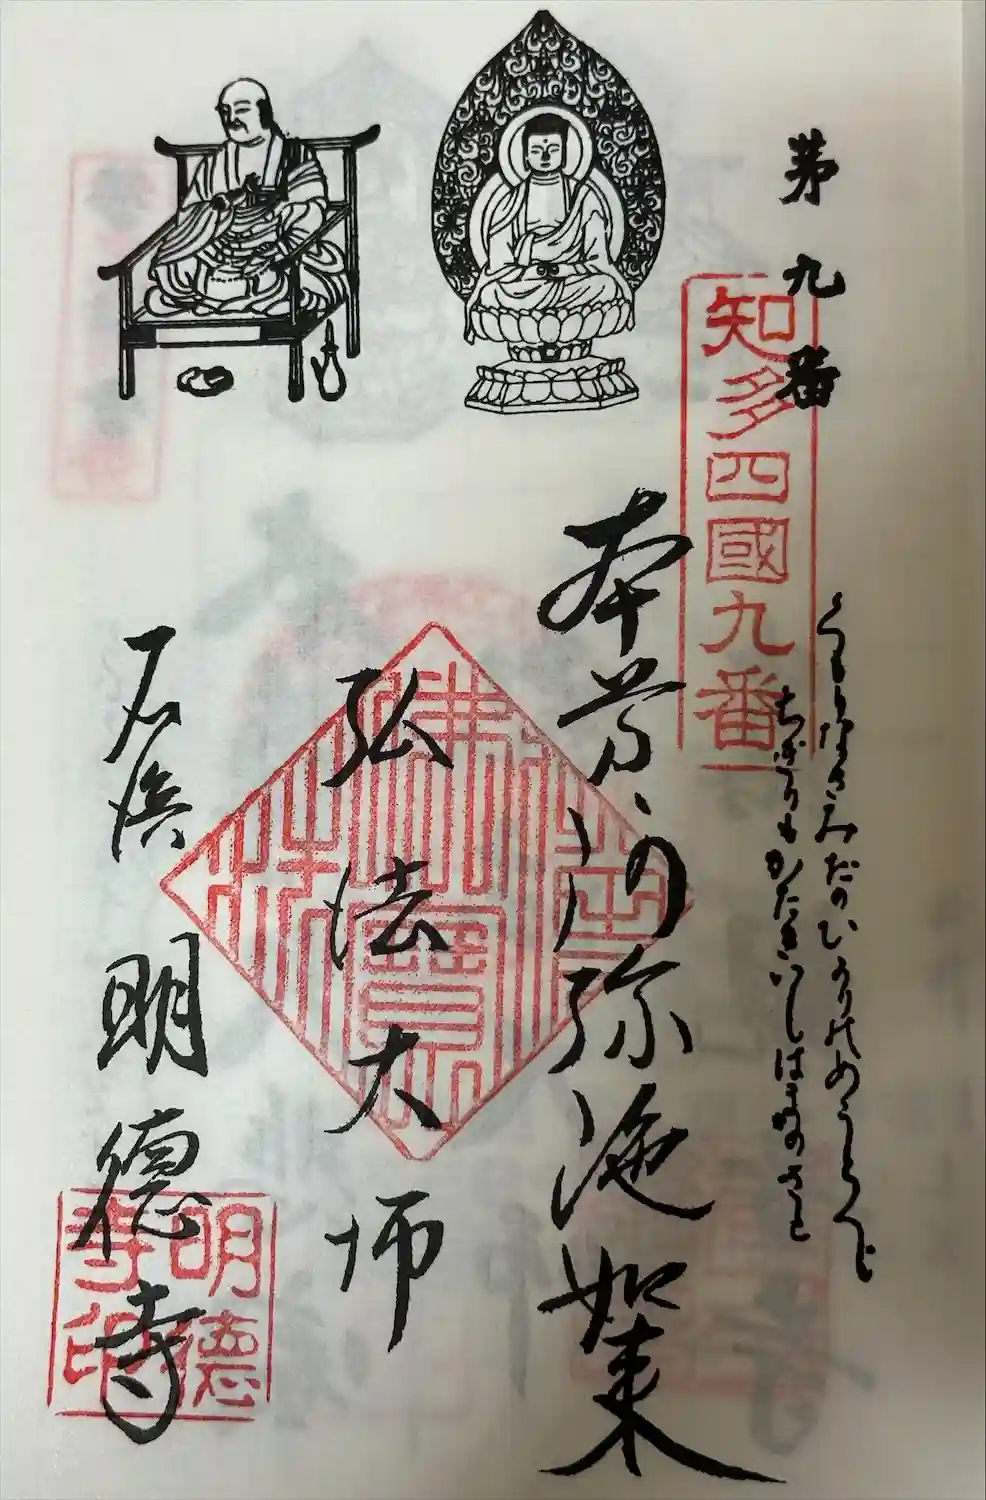 第九番
知多四國九番
くもりなきみだのひかりのめうとくじ
ちぎりもかたきいしはまのさと
本尊阿弥陀如来
弘法大師
石浜 明徳寺
明德
寺印